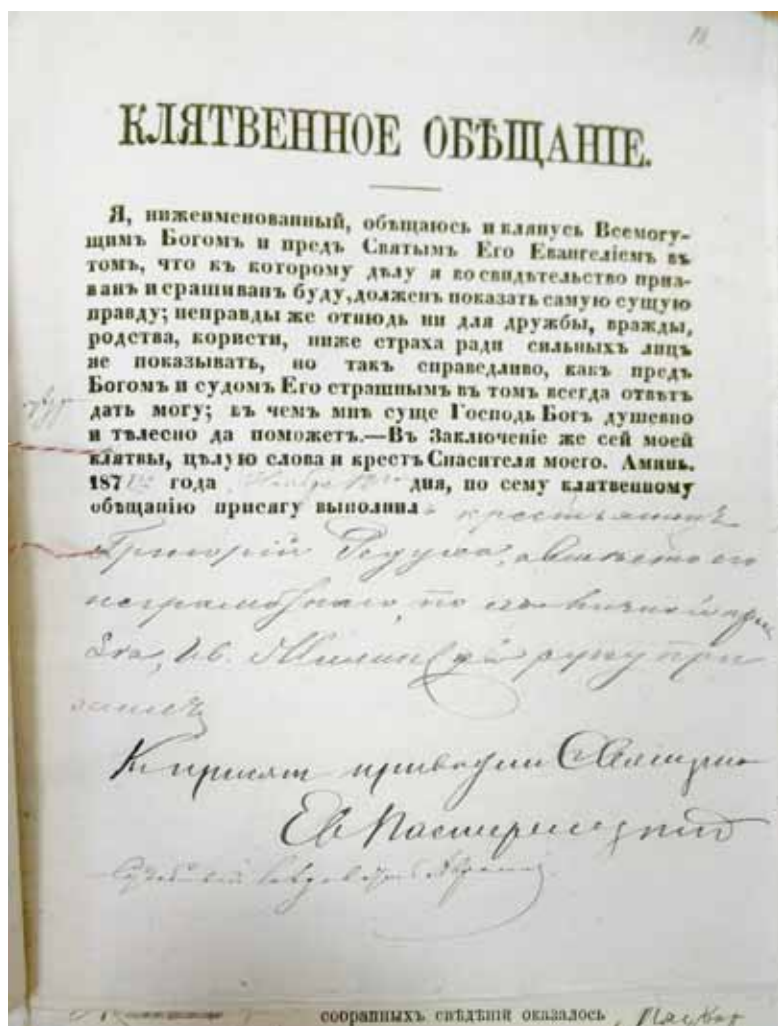 КЛЯТВЕННОЕ ОБѢЩАНІЕ.
Я, нижеименованный, обѣщаюсь и клянусь Всемогу-
щимъ Богомъ и предъ Святымъ Его Евангеліемъ въ
томъ, что къ которому дѣлу я во свидѣтельство приз-
ванъ и срашиванъ буду, долженъ показать самую сущую
правду; неправды же отнюдь ни для дружбы, вражды,
родства, користи, ниже страха ради сильныхъ лицъ
не показывать, но такъ справедливо, какъ предъ
Богомъ и судомъ Его страшнымъ въ томъ всегда отвѣтъ
дать могу; въ чемъ мнѣ суще Господь Богъ душевно
и тѣлесно да поможетъ.—Въ Заключеніе же сей моей
клятвы, цѣлую слова и крестъ Спасителя моего. Аминь.
187 года дня, по сему клятвенному
обѣщанію присягу выполнилъ крестьянинъ
Григорій а вместо его
неграмотнаго, по его личной
Ив. руку при
Къ присягѣ приводилъ Священно
Ев.
собранныхъ свѣдѣній оказалось